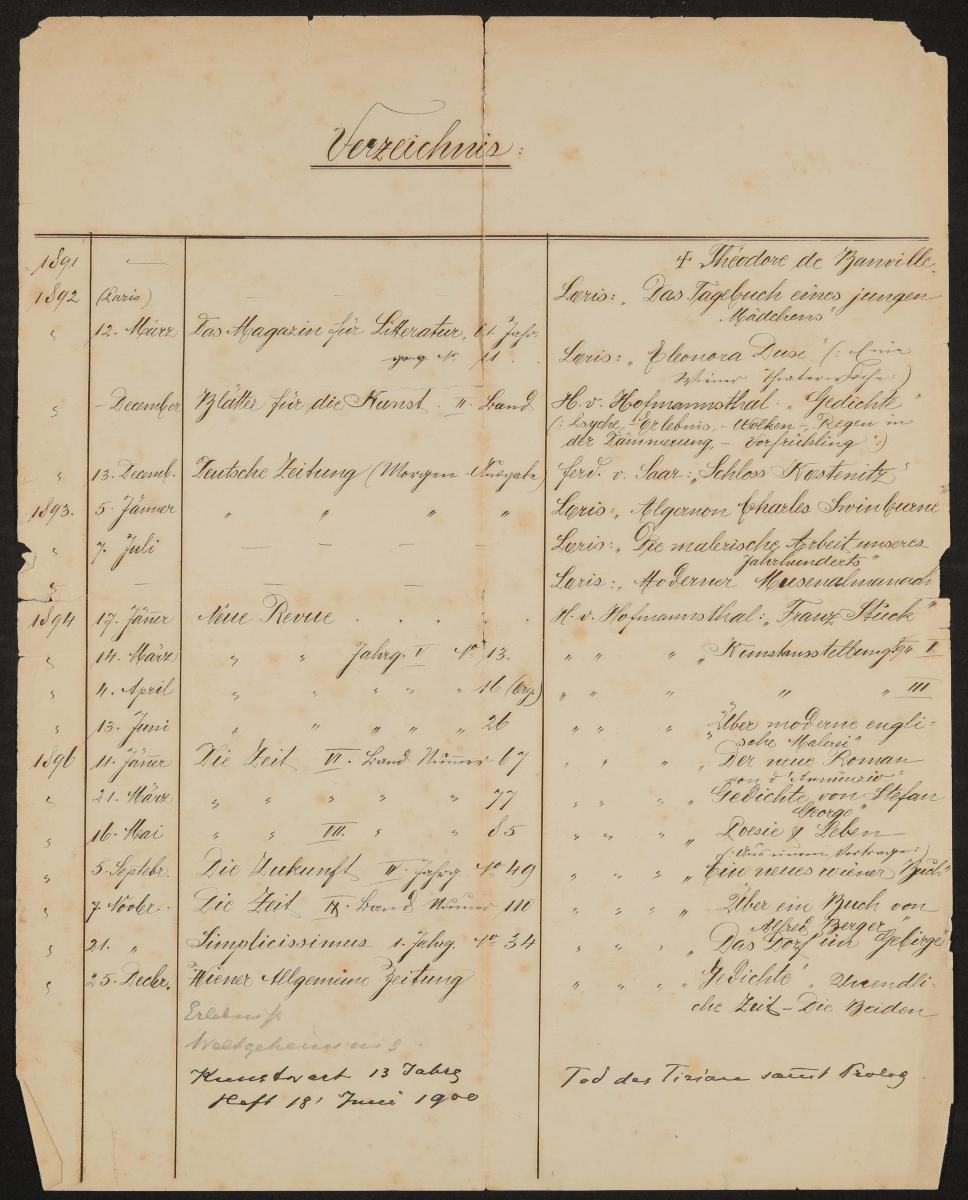 Verzeichnis:
1891 — † Théodore de Banville.
1892 (Paris) — — — Loris: „Das Tagebuch eines jungen
Mädchens"
„ 12. März Das Magazin für Litteratur, 61. Jahr-
gang No 11. Loris: „Eleonora Duse" (: Eine
Wiener Theaterwoche :)
„ – December Blätter für die Kunst. II. Band H. v. Hofmannsthal: „Gedichte"
(: Psyche, – Erlebnis, – Wolken –, Regen in
der Dämmerung, – Vorfrühling :)
„ 13. Decemb. Deutsche Zeitung (Morgen-Ausgabe) Ferd. v. Saar: „Schloss Kostenitz"
1893. 5. Jänner „ „ „ „ Loris: „Algernon Charles Swinburne"
„ 7. Juli — — — Loris: „Die malerische Arbeit unseres
Jahrhunderts"
„ — — — — Loris: „Moderner Musenalmanach
1894 17. Jänner Neue Revue . . . . . H. v. Hofmannsthal: „Franz Stuck"
„ 14. März „ „ Jahrg. V No 13. „ „ „ „Kunstausstellung I
„ 4. April „ „ „ „ „ 16 „ „ „ „ „ III
„ 13. Juni „ „ „ „ „ 26 „ „ „ „Über moderne engli-
sche Malerei"
1896 11. Jänner Die Zeit VI. Band Numer 67 „ „ „ „Der neue Roman
von d'Annunzio"
„ 21. März „ „ „ „ „ 77 „ „ „ „Gedichte von Stefan
George"
„ 16. Mai „ „ VII. „ „ 85 „ „ „ „Poesie & Leben
(: Aus einem Vortrage :)
„ 5. Septbr. Die Zukunft IV. Jahrg No 49 „ „ „ „Ein neues wiener Buch"
„ 7. Novbr. Die Zeit IX. Band Numer 110 „ „ „ „Über ein Buch von
Alfred Berger"
„ 21. „ Simplicissimus 1. Jahrg. No 34 „ „ „ „Das Dorf im Gebirge"
„ 25. Decbr. Wiener Allgemeine Zeitung „ „ „ „Gedichte"
che Zeit – Die Beiden
Erlebniß
Weltgeheimnis.
Kunstwart 13 Jahrg Tod des Tizian samt Prolog
Heft 18, Juni 1900